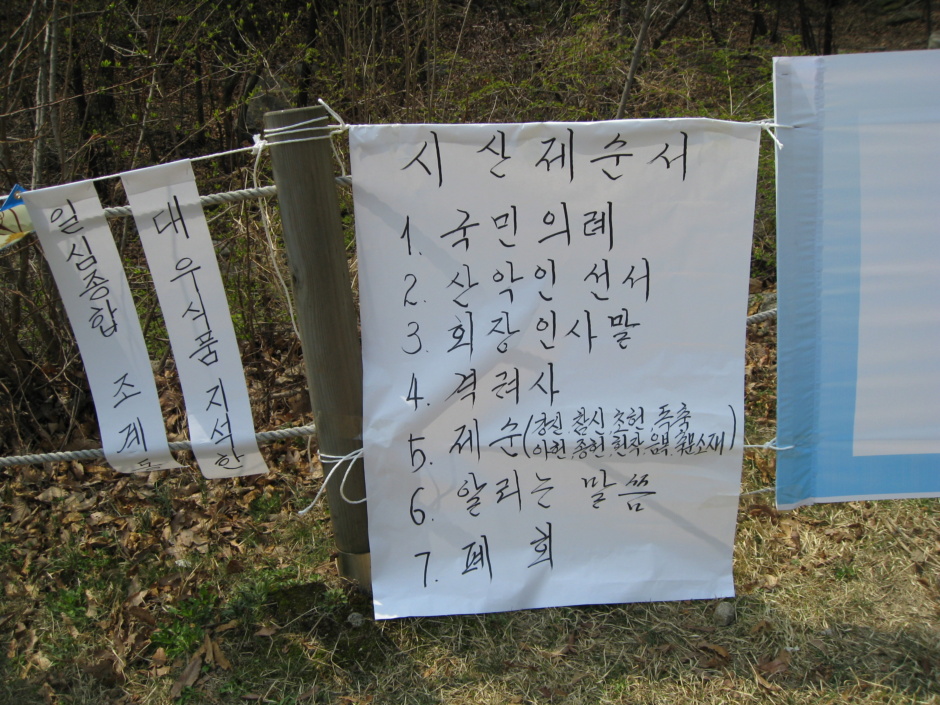 일심종합 조계
대우식품 지석한
시산제순서
1. 국민의례
2. 산악인 선서
3. 회장인사말
4. 격려사
5. 제순(강신.참신.초헌.독축
아헌.종헌.헌작.음복.축문소재)
6. 알리는 말씀
7. 폐 회